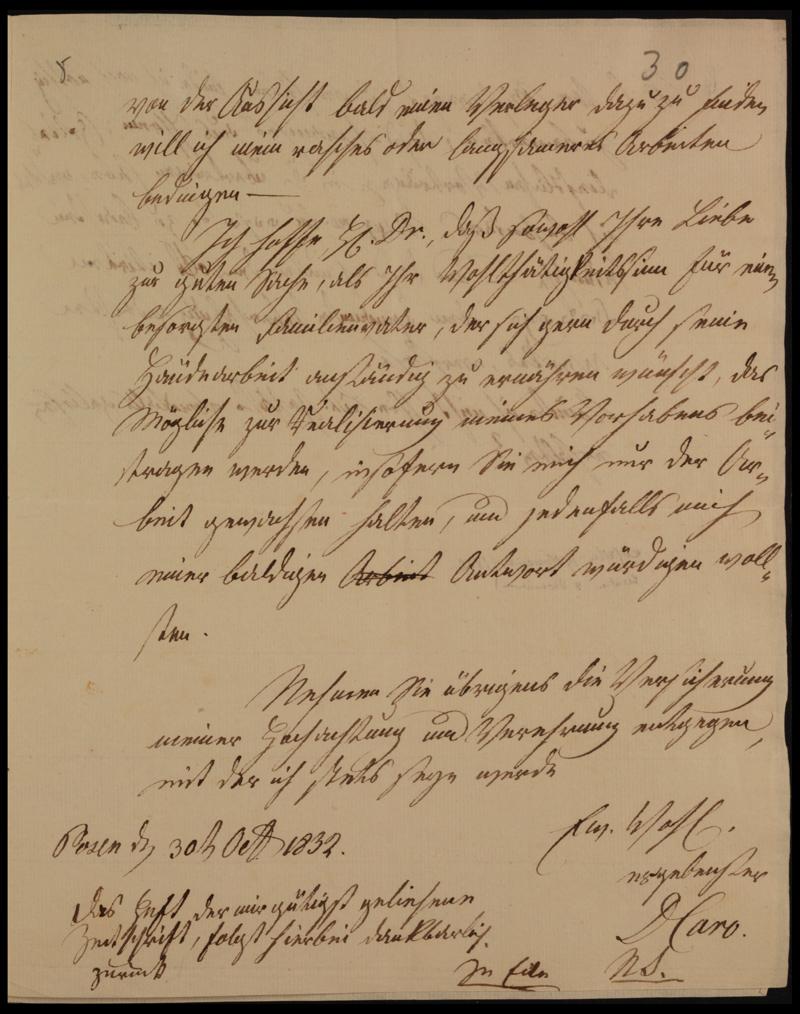 30
von der Aussicht bald einen Verleger dazu zu finden
will ich mein rasches oder langsameres Arbeiten
bedingen —
Ich hoffe, H. Dr., daß sowohl Ihre Liebe
zur guten Sache, als Ihr Wohlthätigkeitssinn für einen
besorgten Familienvater, der sich gern durch seine
Händearbeit anständig zu ernähren wünscht, das
Mögliche zur Realisierung meines Vorhabens bei-
tragen werden, insofern Sie mich nur der Ar-
beit gewachsen halten, und jedenfalls mich
einer baldigen Arbeit Antwort würdigen woll-
ten.
Nehmen Sie übrigens die Versicherung
meiner Hochachtung und Verehrung entgegen,
mit der ich stets seyn werde
Ew. Wohl.
ergebenster
D Caro.
Posen d 30t Oct 1832.
Das Heft der mir gütigst geliehenen
Zeitschrift, folgt hierbei dankbarlich
zurück
In Eile N.S.